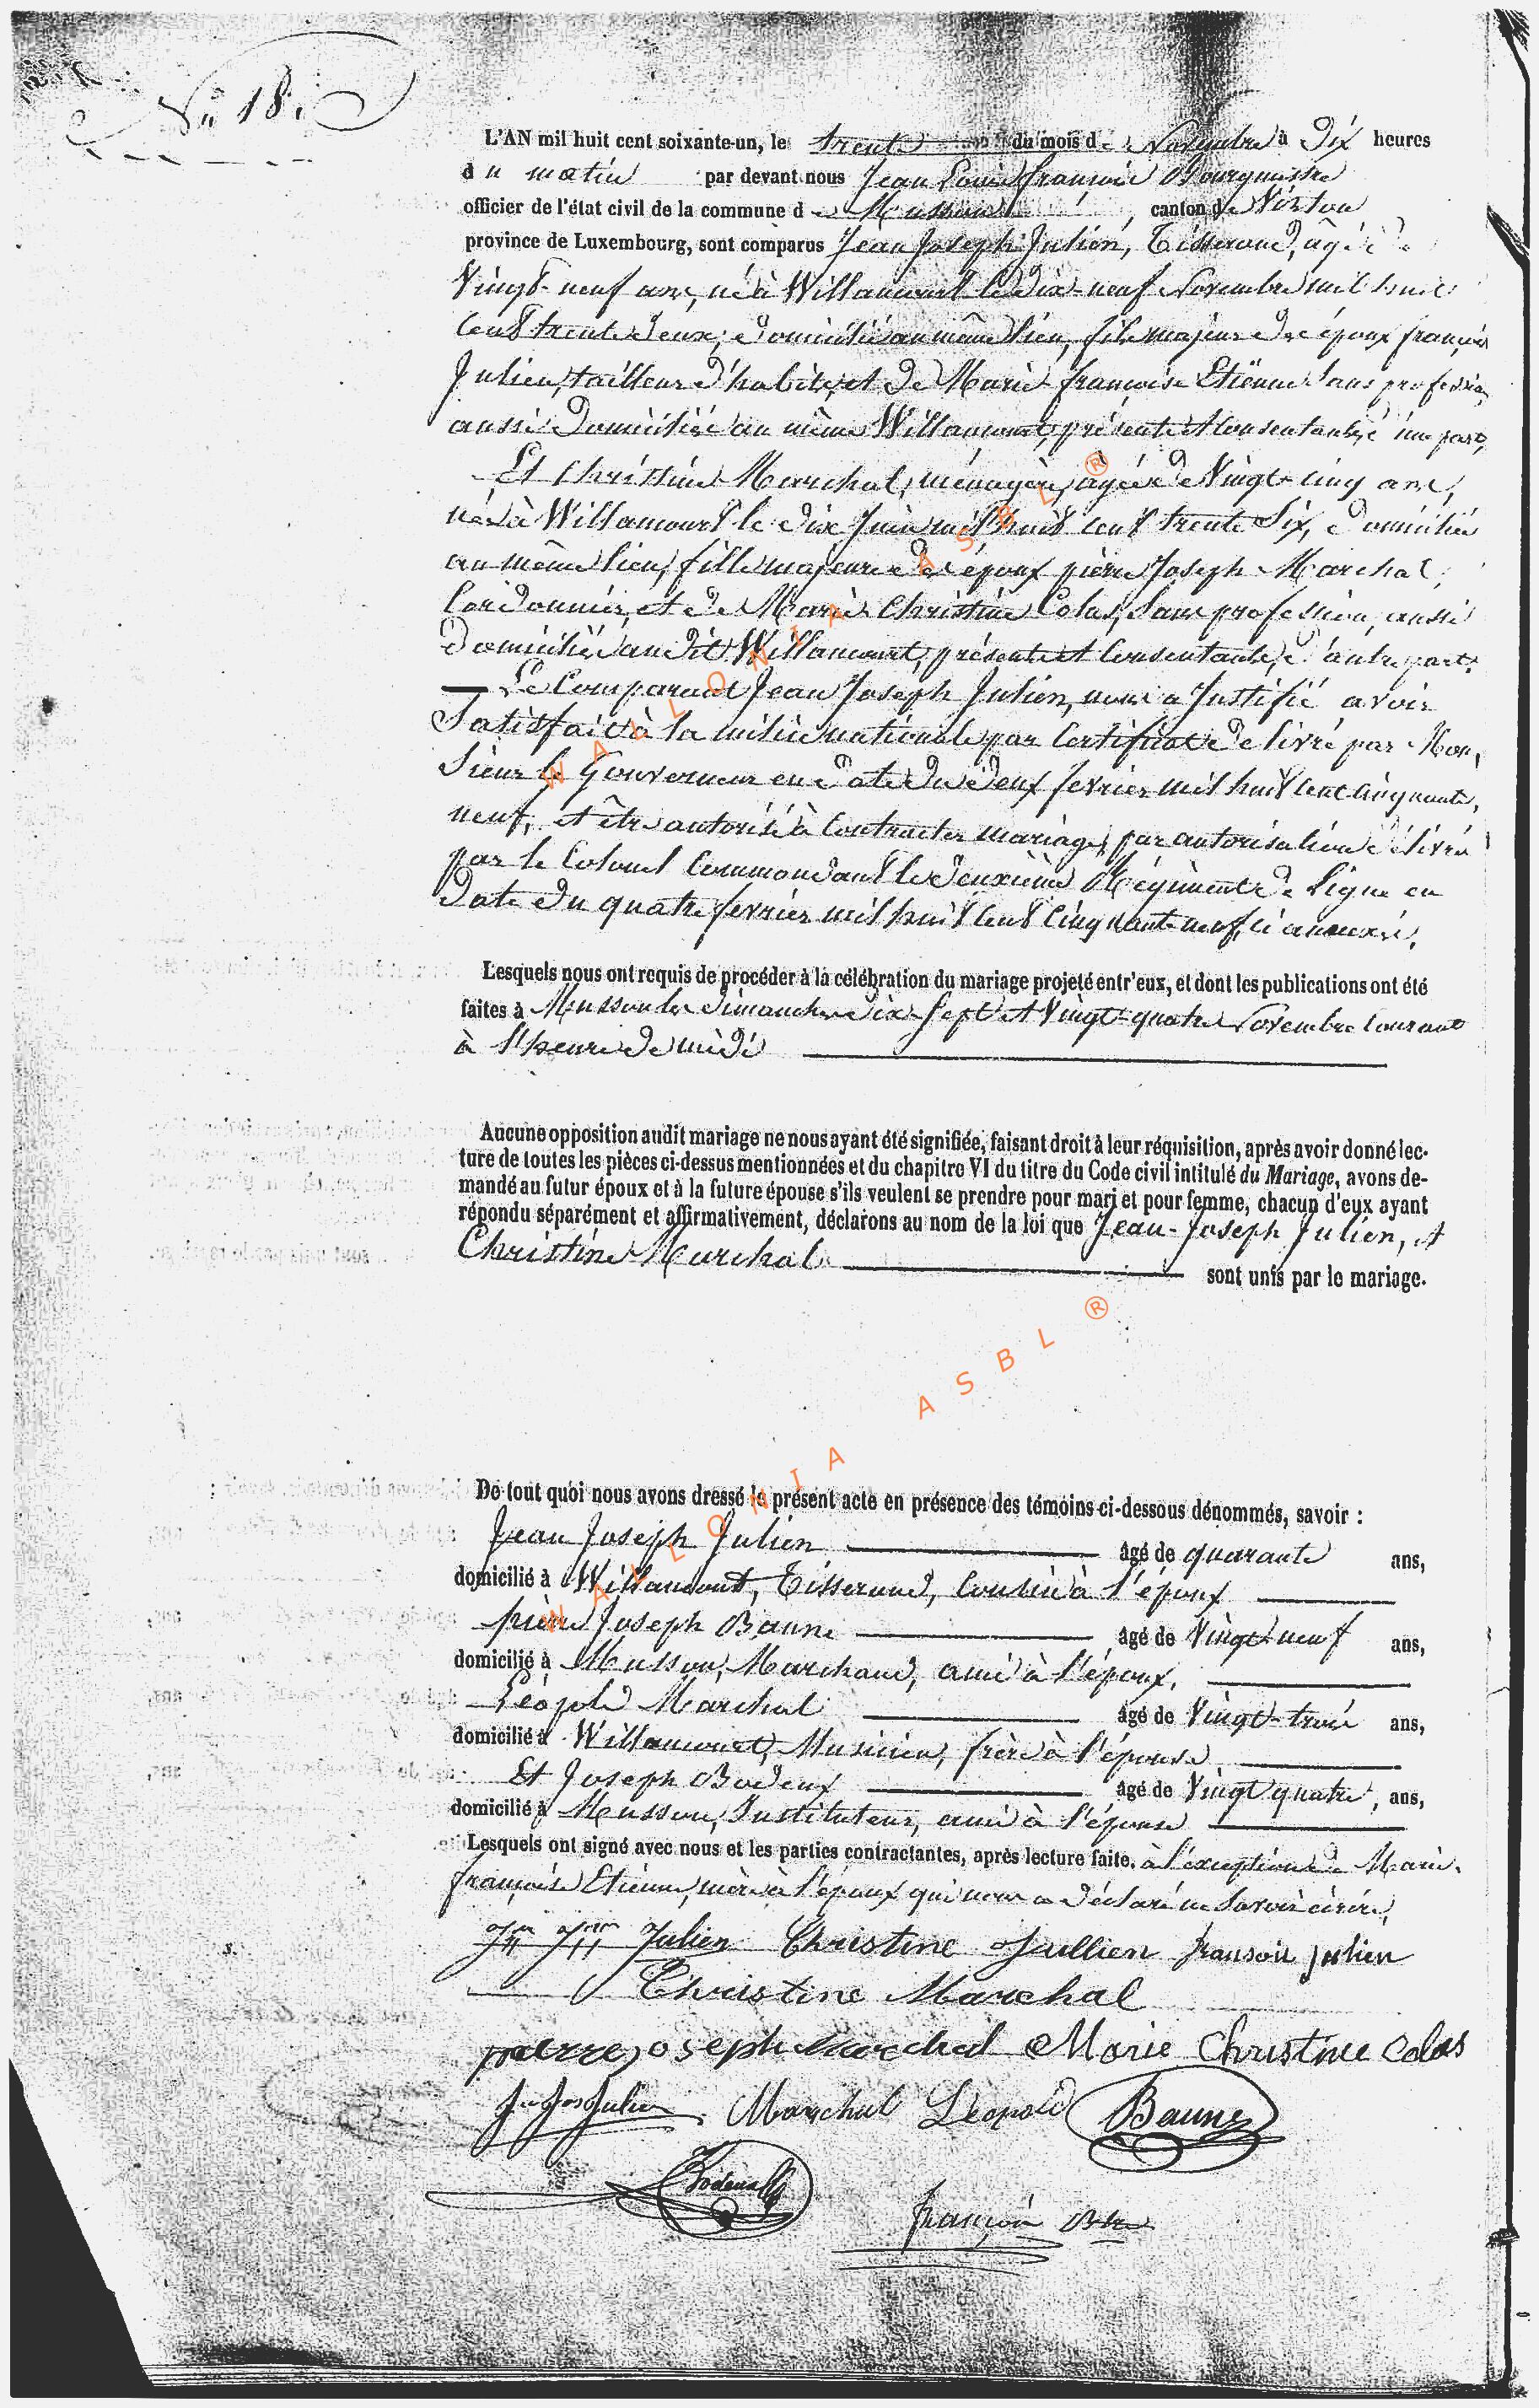 No 18.
L'AN mil huit cent soixante-un, le trente du mois de Novembre à Dix heures
du matin par devant nous Jean Louis françois Bourgmestre
officier de l'état civil de la commune de Musson, canton de Virton
province de Luxembourg, sont comparus Jean Joseph Julien, Tisserand, âgé de
Vingt-neuf ans, né à Willancourt le dix-neuf Novembre mil huit
Cent trente deux, domicilié au même lieu, fils majeur des époux françois
Julien, tailleur d'habits, et de Marie françoise Etiënne sans profession,
aussi domiciliés au même Willancourt, présents et Consentants, d'une part,
Et Christine Marchal, ménagère, agée de Vingt-cinq ans,
née à Willancourt le dix Juin mil huit cent trente Six, domiciliée
au même lieu, fille majeure des époux pierre Joseph Marchal,
Cordonnier, et de Marie Christine Colas, Sans profession, aussi
domiciliés audit Willancourt, présents et Consentants, d'autre part.
Le Comparant Jean Joseph Julien, nous a Justifié avoir
Satisfait à la milice nationale par Certificat délivré par Mon,
Sieur le Gouverneur en date du deux fevrier mil huit cent cinquante,
neuf, et être autorisé à Contracter mariage, par autorisation délivrée
par le Colonel Commandant le deuxième Régiment de Ligne en
date du quatre fevrier mil huit Cent Cinquante neuf, ci annexés.
Lesquels nous ont requis de procéder à la célébration du mariage projeté entr'eux, et dont les publications ont été
faites à Musson les dimanches dix-Sept et Vingt-quatre Novembre Courant
à l'heure de midi
Aucune opposition audit mariage ne nous ayant été signifiée, faisant droit à leur réquisition, après avoir donné lec-
ture de toutes les pièces ci-dessus mentionnées et du chapitre VI du titre du Code civil intitulé du Mariage, avons de-
mandé au futur époux et à la future épouse s'ils veulent se prendre pour mari et pour femme, chacun d'eux ayant
répondu séparément et affirmativement, déclarons au nom de la loi que Jean-Joseph Julien, et
Christine Marchal sont unis par le mariage.
De tout quoi nous avons dressé le présent acte en présence des témoins ci-dessous dénommés, savoir :
Jean Joseph Julien âgé de quarante ans,
domicilié à Willancourt, Tisserand, Cousin à l'époux
pierre Joseph Baune âgé de Vingt-neuf ans,
domicilié à Musson, Marchand, ami à l'époux,
Léopold Marchal âgé de Vingt-trois ans,
domicilié à Willancourt, Musicien, frère à l'épouse
Et Joseph Bodeux âgé de Vingt quatre, ans,
domicilié à Musson, Instituteur, ami à l'épouse
Lesquels ont signé avec nous et les parties contractantes, après lecture faite, à l'exception de Marie
françoise Etienne, mère à l'époux qui nous a déclaré ne Savoir écrire,
Julien Christine Jullien fransois julien
Christine Marchal
pierre joseph marchal Marie Christine Colas
Jn Jos Julien Marchal Léopold Baune
Bodeux
françois
WALLONIA ASBL ®
WALLONIA ASBL ®